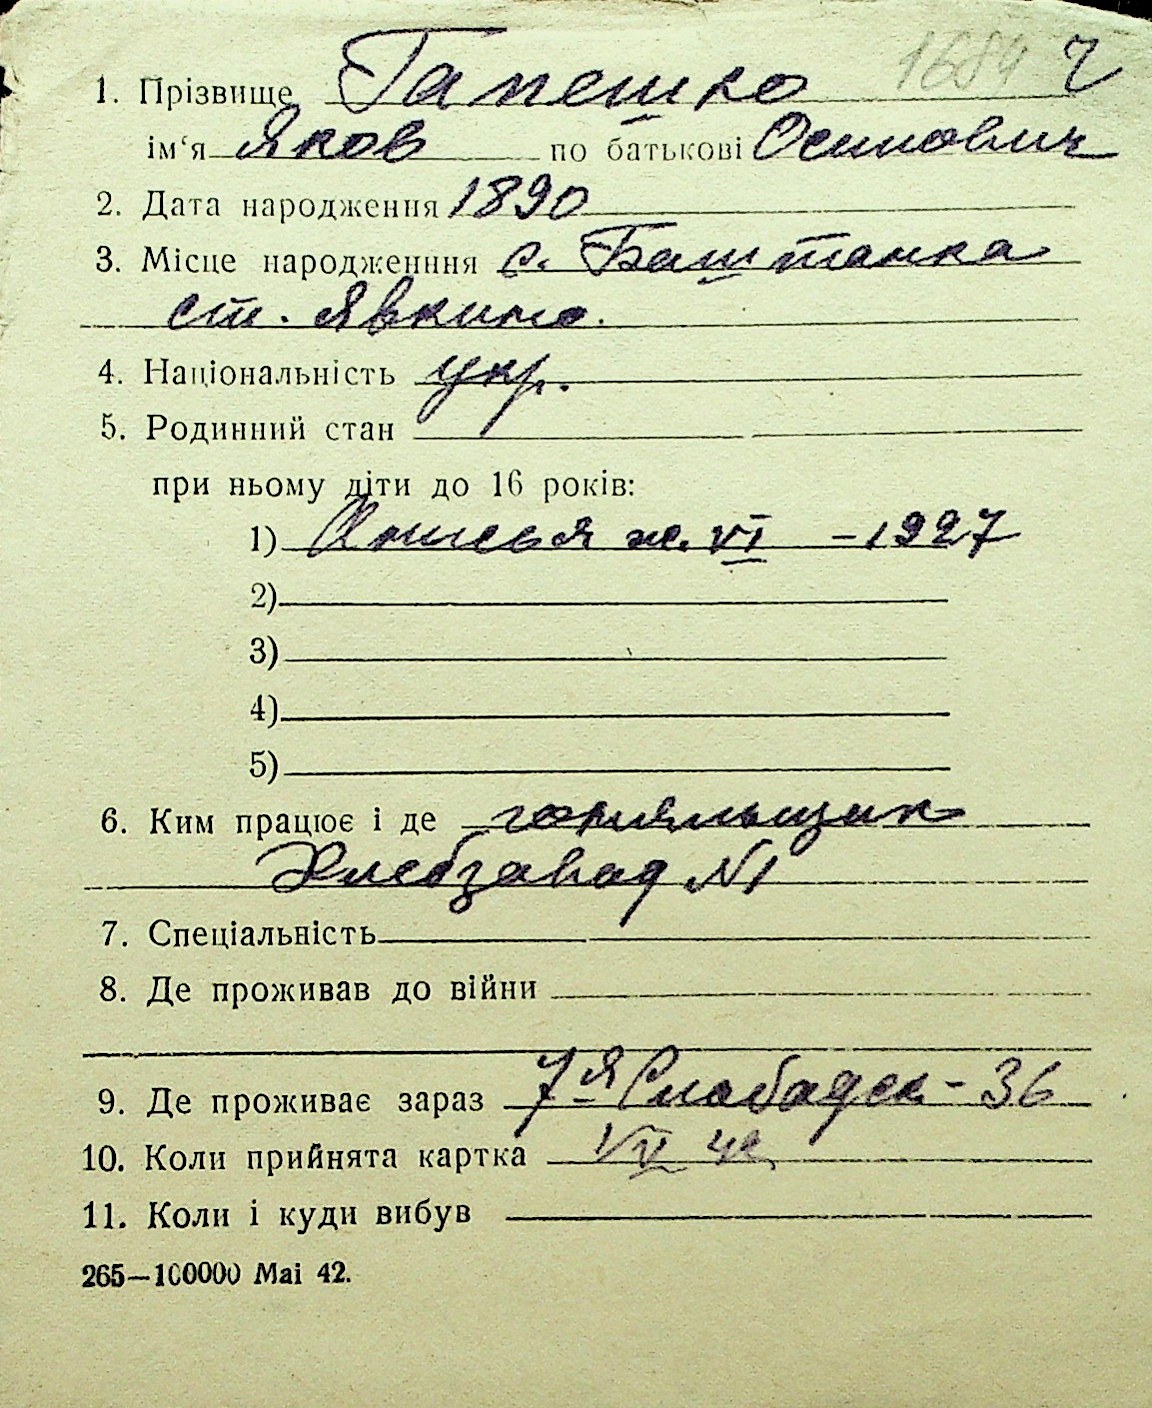 1684 Ч
1. Прізвище Гапешко
ім‘я Яков по батькові Осипович
2. Дата народження 1890
3. Місце народженння с. Баштанка
ст. Явкино.
4. Національність укр.
5. Родинний стан
при ньому діти до 16 років:
1) Анисья ж. VI – 1927
2)
3)
4)
5)
6. Ким працює і де
Хлебзавод №1
7. Спеціальність
8. Де проживав до війни
9. Де проживає зараз 7-я Слободск - 36
10. Коли прийнята картка 42
11. Коли і куди вибув
265—100000 Маі 42.